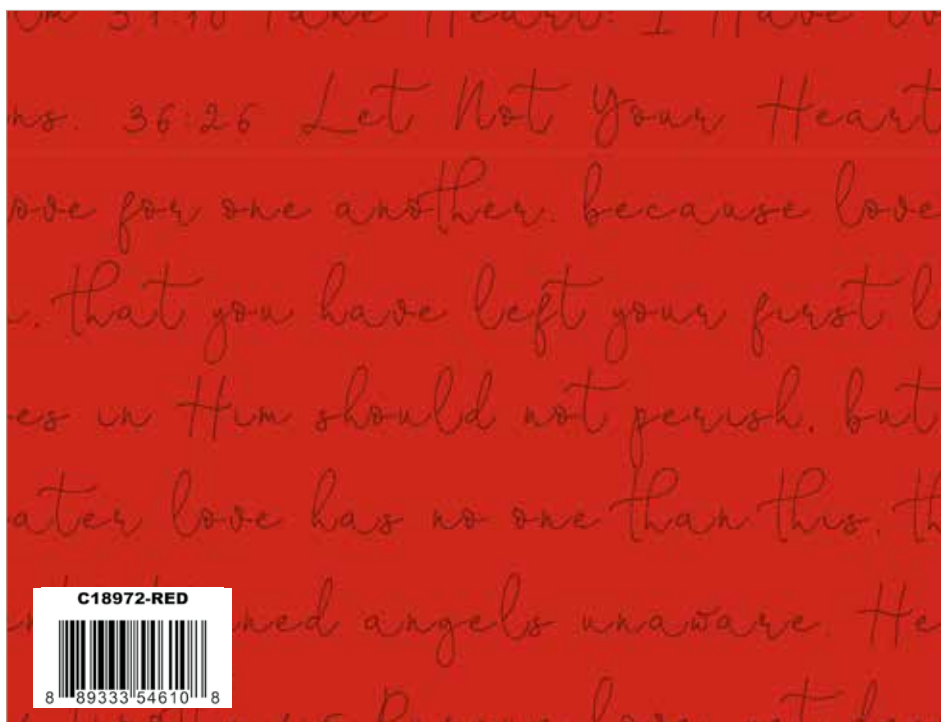 31:10 Take Heart: I Have
ns. 36:26 Let Not Your Heart
ove for one another. because love
. that you have left your first l
es in Him should not perish, but
ater love has no one than this, th
ned angels unaware. He
C18972-RED
8 89333 54610 8